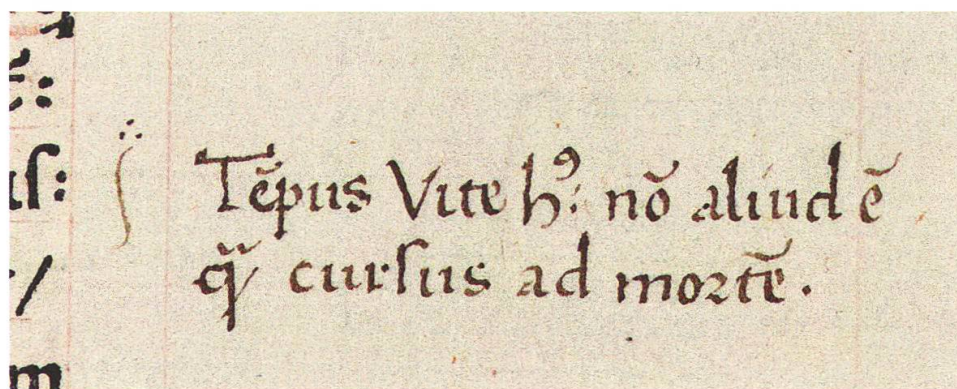 Tēpus Vite hꝰ: nō aliud ē
qᷓ curſus ad mortē.